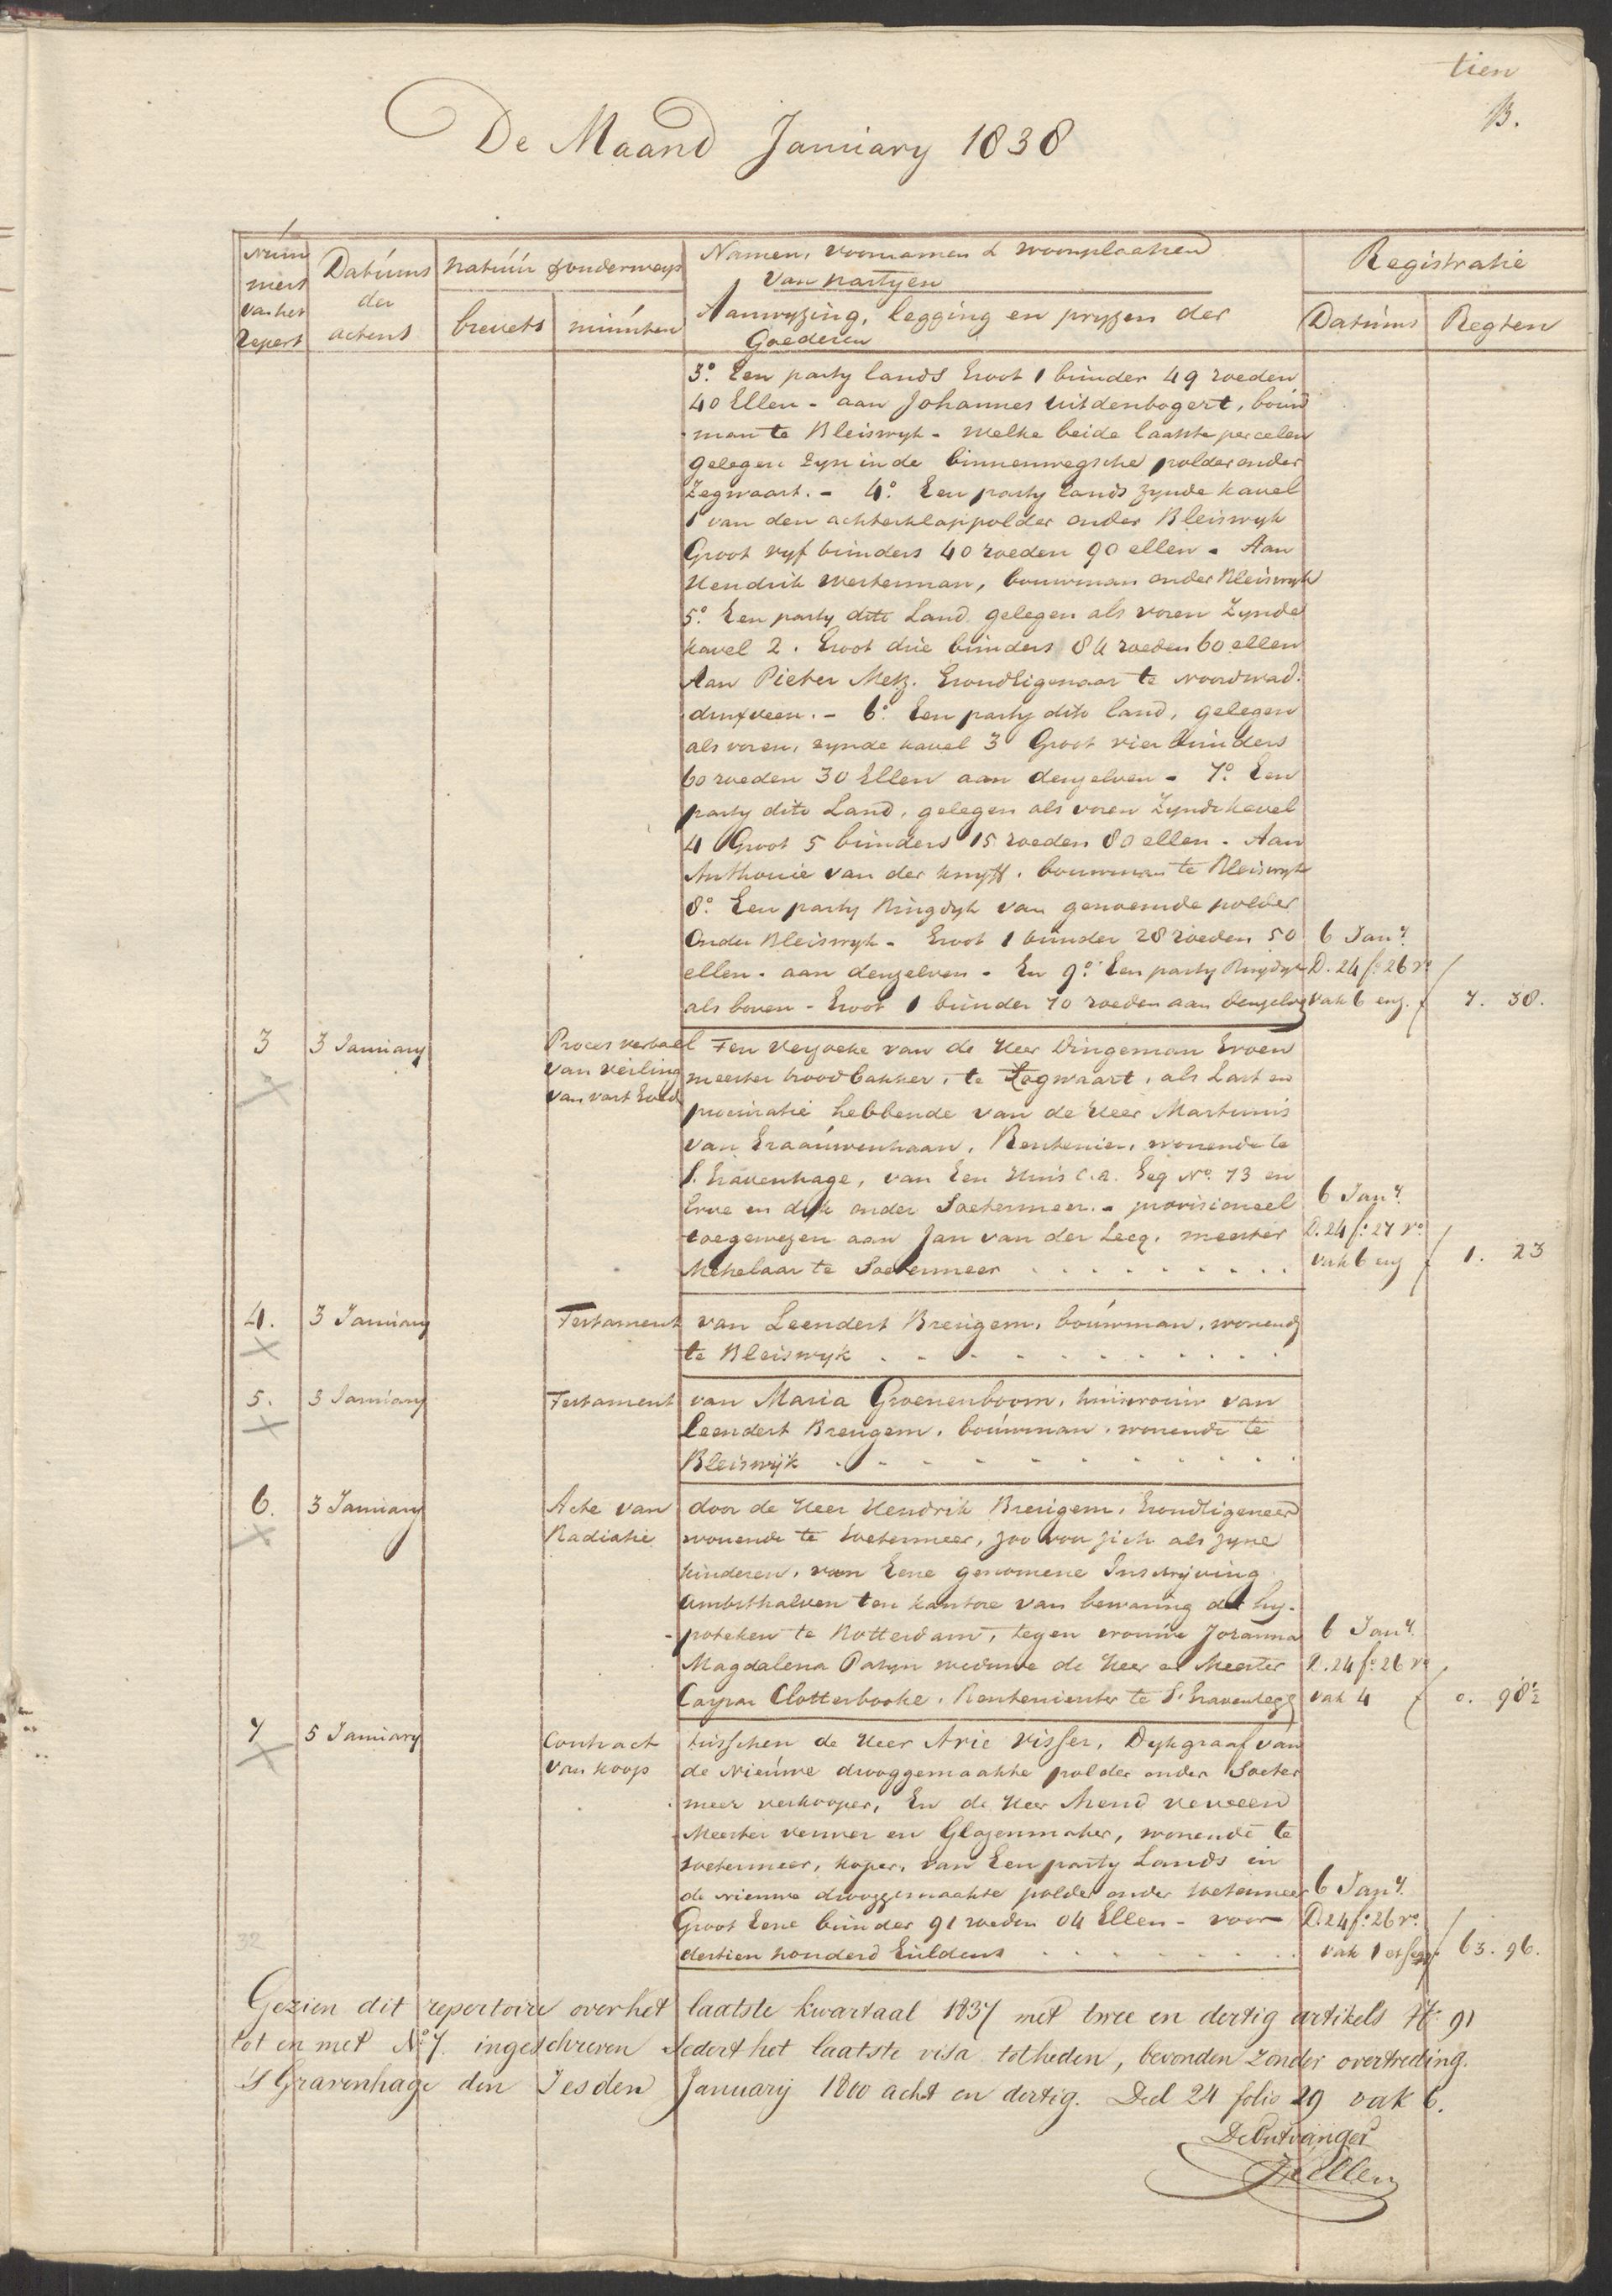 tien
B.
De Maand January 1838
Num
mers
van het
Repert
Datums
der
actens
natuur
brevets
minuten
Namen, voornamen & woonplaatsen
van partyen
Aanwyzing, legging en pryzen der
Goederen
Registratie
Datums
Regten
3o. Een party lands Groot 1 bunder 49 roeden
40 Ellen - aan Johannes uitdenbogert, bouw
man te Bleiswyk - welke beide laatste percelen
gelegen zyn in de binnenwegsche polder onder
Zegwaart. - 4o. Een party lands zynde kavel
1 van den achterklappolder onder Bleiswyk
Groot vyf bunders 40 roeden 90 ellen - Aan
Hendrik Westerman, bouwman onder Bleiswyk
5o. Een party dito Land gelegen als voren Zynde
kavel 2. Groot drie bunders 84 roeden 60 ellen
Aan Pieter Metz. Grondeigenaar te noordwad.
dinxveen. - 6o. Een party dito land, gelegen
als voren, zynde kavel 3 Groot vier bunders
60 roeden 30 Ellen aan denzelven - 7o. Een
party dito Land, gelegen als voren Zynde kavel
4 Groot 5 bunders 15 roeden 80 ellen - Aan
Anthonie van der knyff, bouwman te Bleiswyk
8o. Een party Ringdyk van genoemde polder
Onder Bleiswyk - Groot 1 bunder 28 roeden 50
ellen - aan denzelven - En 9o. Een party Ringdyk
als boven - Groot 1 bunder 70 roeden aan denzelven
6 Jany.
D. 24 fo. 26 ro
vak 6 en
7. 38.
3
3 January
Proces verbaal
van veiling
van vast Goed
Ten verzoeke van de Heer Dingeman Groen
meester broodbakker, te Zegwaart, als Last en
procuratie hebbende van de Heer Martinus
van Graauwenhaan, Rentenier, wonende te
S. Gravenhage, van Een Huis c.a. Geq No. 73 en
Erve en dyk onder Soetermeer. - provisioneel
toegewezen aan Jan van der Leeq, meester
Metselaar te Soetermeer . . . . . . . . .
6 Jany.
D. 24 fo. 27 ro.
vak 6 en
1. 23
4.
3 January
Testament
van Leendert Breugem, bouwman, wonende
te Bleiswyk . . . . . . . . . .
5.
3 January
Testament
van Maria Groenenboom, huisvrouw van
Leendert Breugem, bouwman, wonende te
Bleiswijk . . . . . . . . . . .
6.
3 January
Acte van
Radiatie
door de Heer Hendrik Breugem, Grondeigeneer
wonende te Soetermeer, zoo voor zich als zyne
kinderen, van Eene genomene Inschrijving
ambtshalven ten kantore van bewaring der hy-
potheken te Rotterdam, tegen vrouwe Johanna
Magdalena Patyn weduwe de Heer en Meester
Caspar Clotterbooke, Rentenierster te S. Gravenhage
6 Jany.
D. 24 fo. 26 vo
vak 4
0. 98½
7
5 January
Contract
van koop
tusschen de Heer Arie Visser, Dykgraaf van
de Nieuwe drooggemaakte polder onder Soeter
meer verkooper, En de Heer Arend verveen
Meester verwer en Glazenmaker, wonende te
Soetermeer, koper, van Een party Lands in
de nieuwe drooggemaakte polder onder Soetermeer
Groot Eene bunder 91 roeden 04 Ellen - voor
dertien honderd Guldens . . . . . . . .
6 Jany.
D. 24 fo. 26 ro.
vak 1 et
63. 96.
32
Gezien dit repertoire over het laatste kwartaal 1837 met twee en dertig artikels No. 91
tot en met No. 7. ingeschreven sedert het laatste visa tot heden, bevonden zonder overtreding.
'S Gravenhage den 7esden Januarij 1800 acht en dertig. Deel 24 folio 29 vak 6.
De Ontvanger